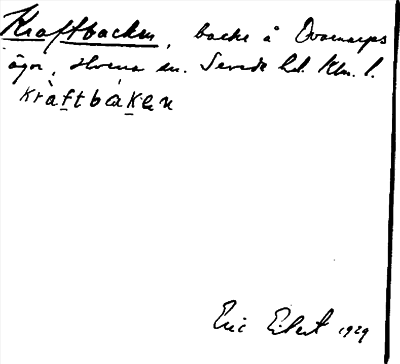 Kraftbacken, backe å Ovenarps
ägor, Hvena sn. Sevede hd. Klm. l.
kràftbáken
Eric Eilert 1929